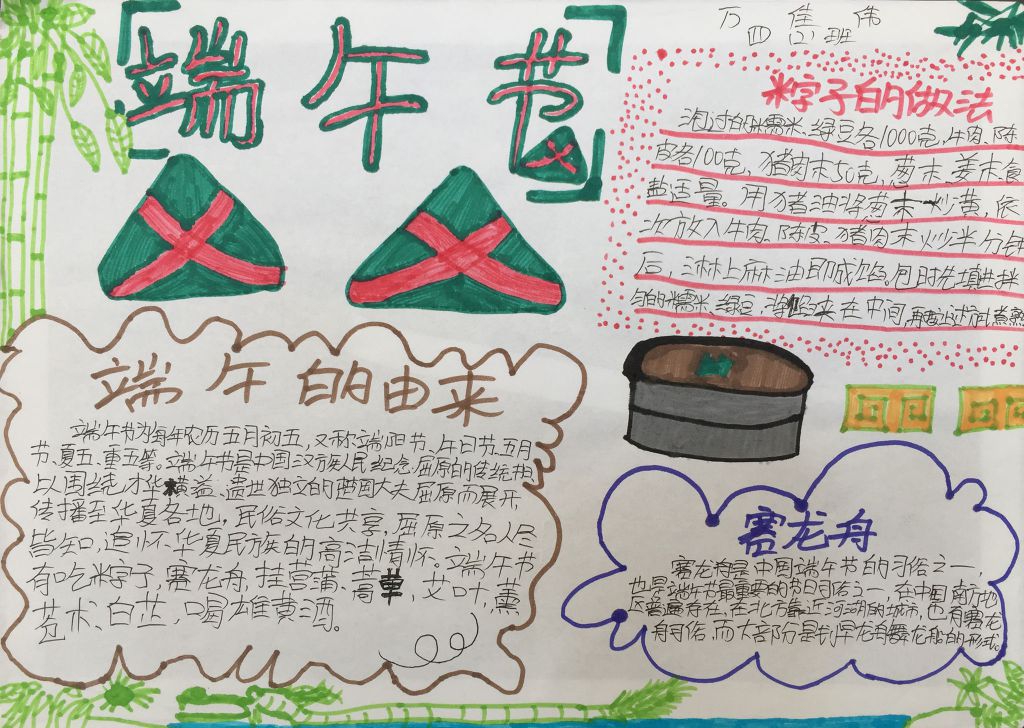 端午节
万佳伟
四(2)班
粽子的做法
泡过的糯米、绿豆各1000克,牛肉、陈
皮各100克,猪肉末50克,葱末、姜末食
盐适量。用猪油将葱末炒黄,依
次放入牛肉、陈皮、猪肉末炒半分钟
后,淋上麻油即成馅。包时先填进拌
匀的糯米、绿豆,将馅夹在中间,
端午的由来
端午节为每年农历五月初五,又称端阳节、午日节、五月
节、夏五、重五等。端午节是中国汉族人民纪念屈原的传统节日
以围绕才华横溢、遗世独立的楚国大夫屈原而展开,
传播至华夏各地,民俗文化共享,屈原之名人尽
皆知,追怀华夏民族的高洁情怀。端午节
有吃粽子,赛龙舟,挂菖蒲、蒿草,艾叶,薰
苍术、白芷,喝雄黄酒。
赛龙舟
赛龙舟是中国端午节的习俗之一,
也是端午节最重要的节日习俗之一,在中国南方地
区普遍存在,在北方靠近河湖的城市也有赛龙
舟习俗,而大部分是划旱龙舟舞龙船的形式。